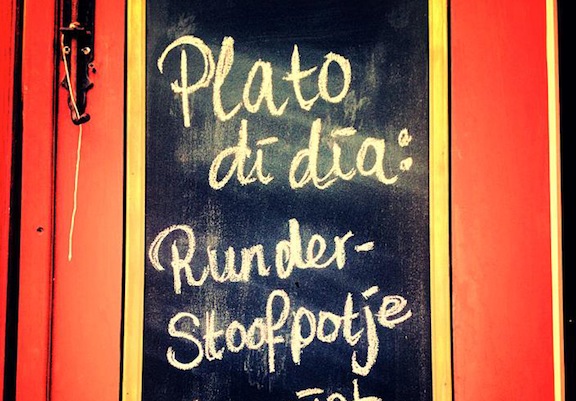 Plato
di día:
Runder-
Stoofpotje